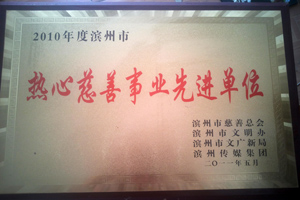 2010年度滨州市
热心慈善事业先进单位
滨州市慈善总会
滨州市文明办
滨州市文广新局
滨州传媒集团
二〇一一年五月